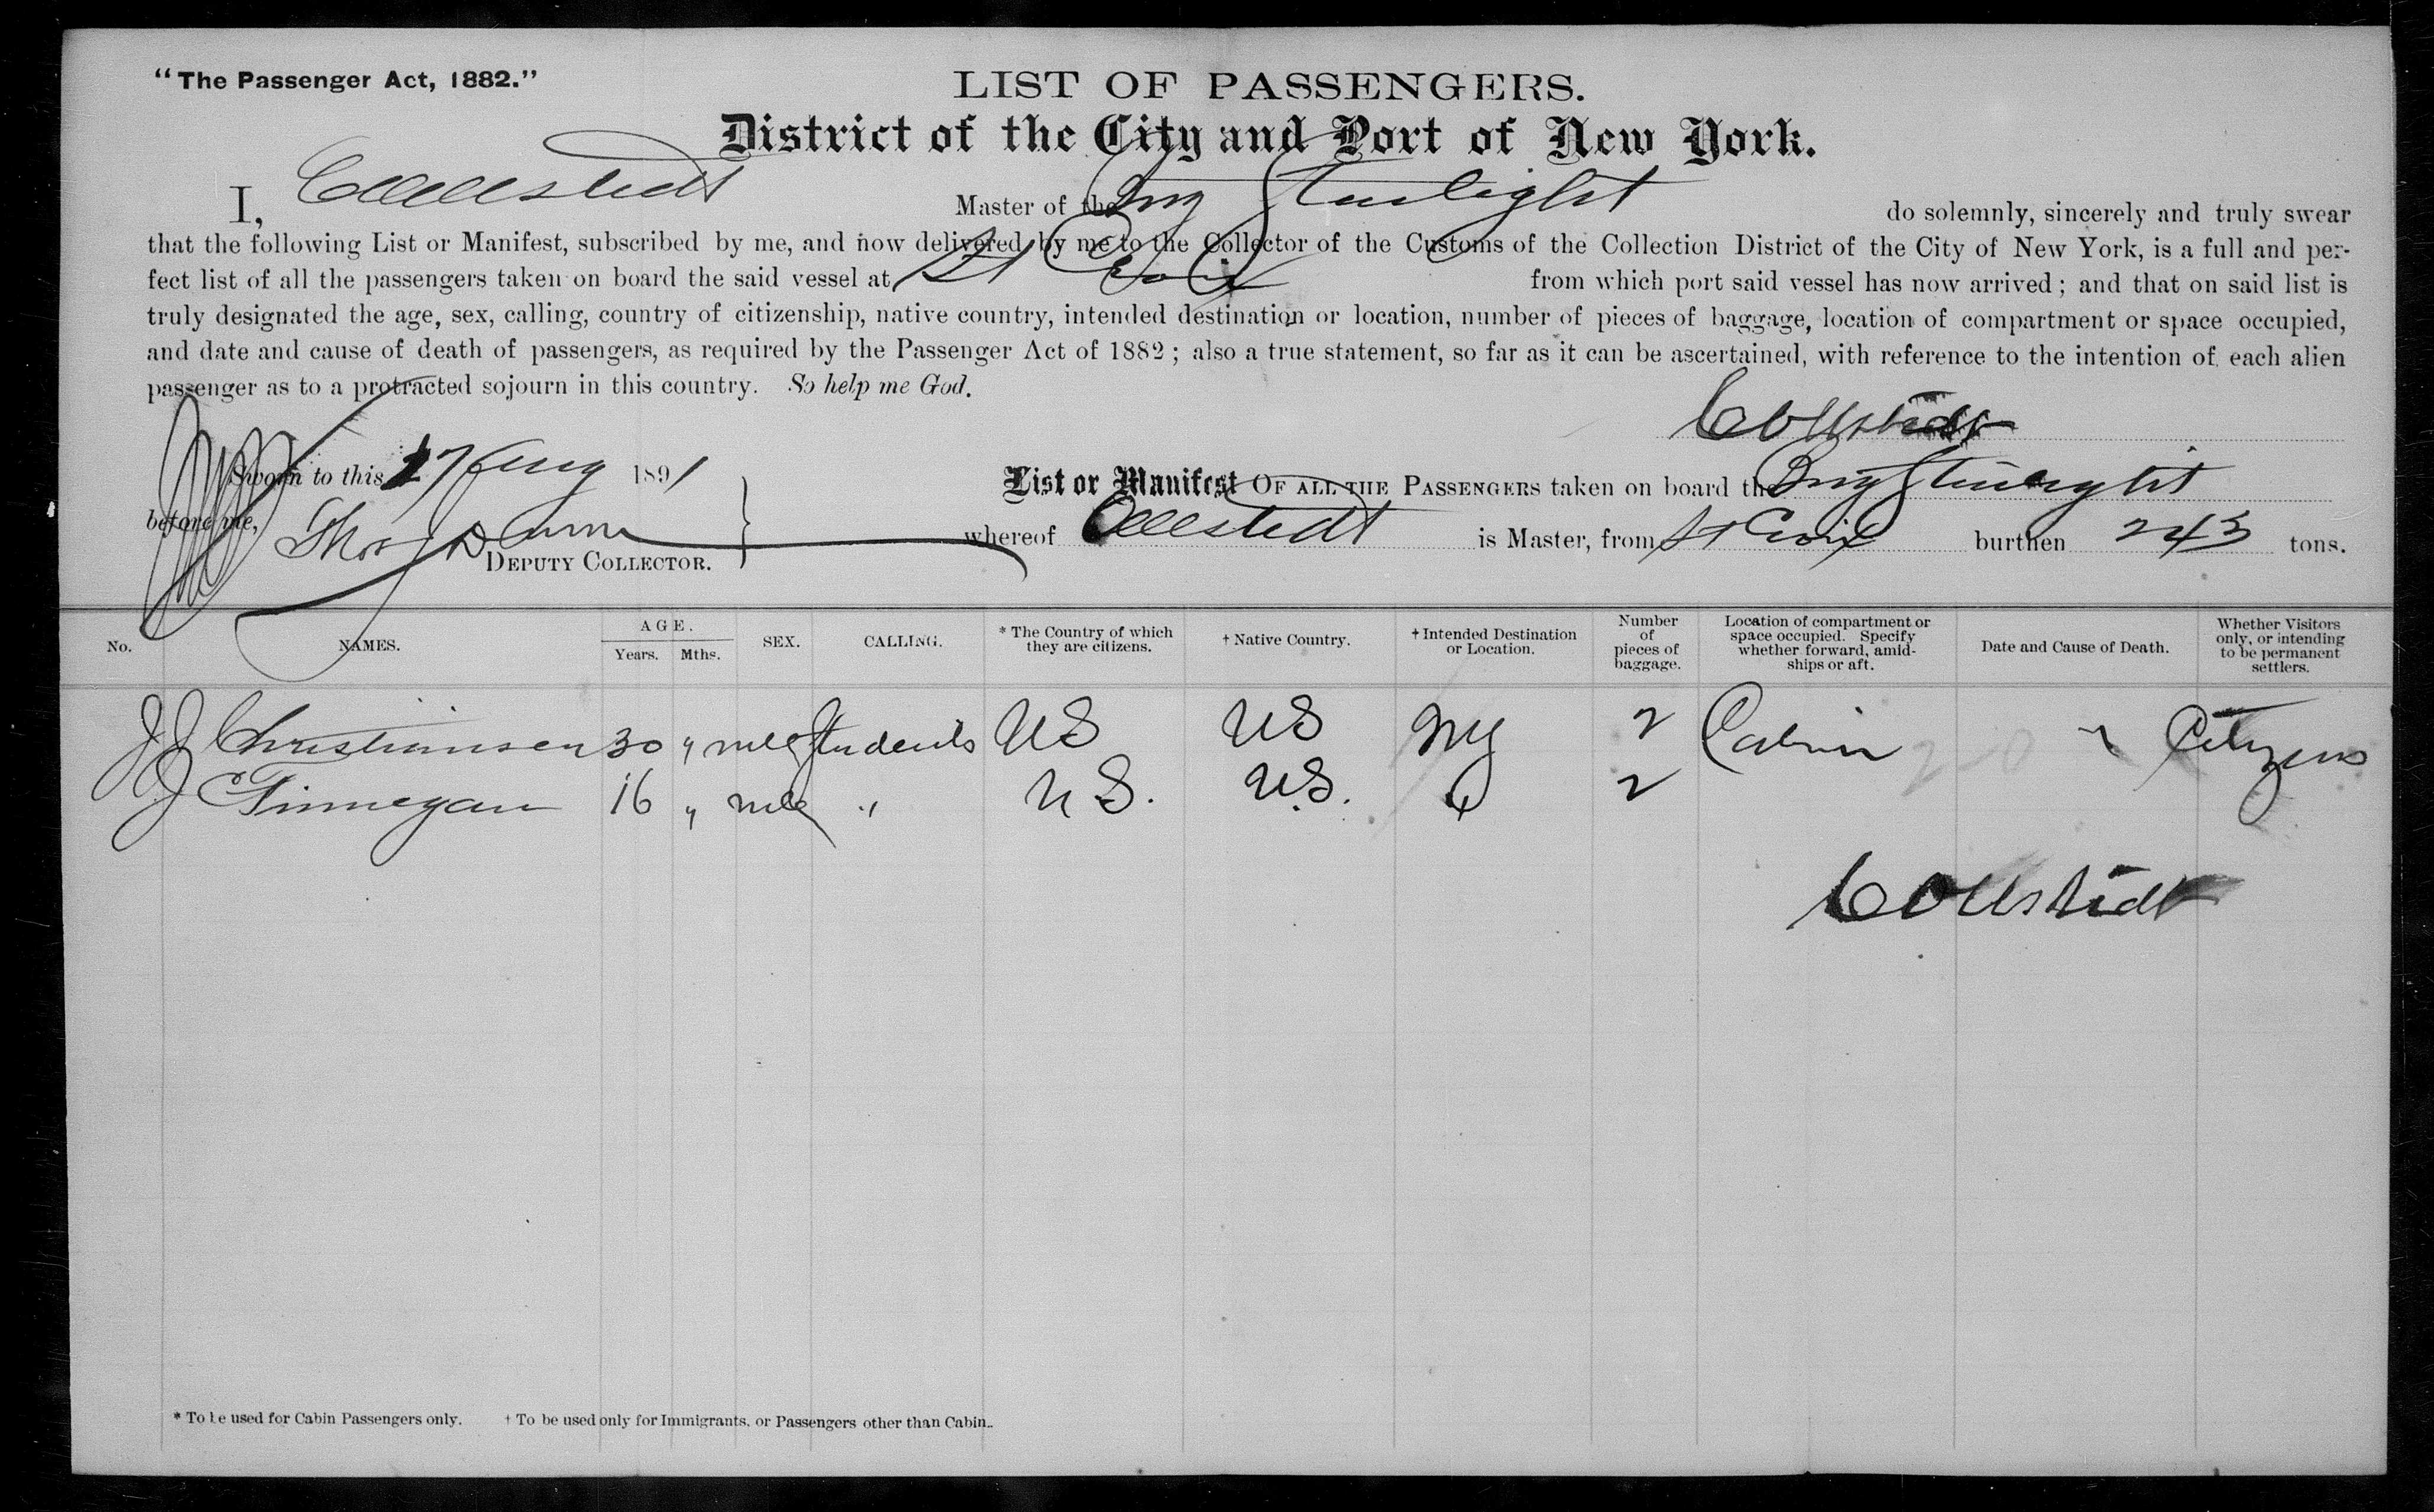 “The Passenger Act, 1882.”
LIST OF PASSENGERS.
District of the City and Port of New York.
I, Master of the Brig Starlight do solemnly, sincerely and truly swear
that the following List or Manifest, subscribed by me, and now delivered by me to the Collector of the Customs of the Collection District of the City of New York, is a full and per-
fect list of all the passengers taken on board the said vessel at St Croix from which port said vessel has now arrived; and that on said list is
truly designated the age, sex, calling, country of citizenship, native country, intended destination or location, number of pieces of baggage, location of compartment or space occupied,
and date and cause of death of passengers, as required by the Passenger Act of 1882; also a true statement, so far as it can be ascertained, with reference to the intention of each alien
passenger as to a protracted sojourn in this country. So help me God.
Sworn to this 27 Aug 1891
before me, Thos J Dunn
DEPUTY COLLECTOR.
List or Manifest OF ALL THE PASSENGERS taken on board the Brig
whereof is Master, from St Croix burthen 243 tons.
No. NAMES. AGE. Years. Mths. SEX. CALLING. * The Country of which they are citizens. † Native Country. † Intended Destination or Location. Number of pieces of baggage. Location of compartment or space occupied. Specify whether forward, amid-ships or aft. Date and Cause of Death. Whether Visitors only, or intending to be permanent settlers.
JJ Christiansen 30 " mle Students US US NY 2 Cabin Citizens
J Finnegan 16 " mle " U S. U.S. 2
* To be used for Cabin Passengers only. † To be used only for Immigrants, or Passengers other than Cabin.